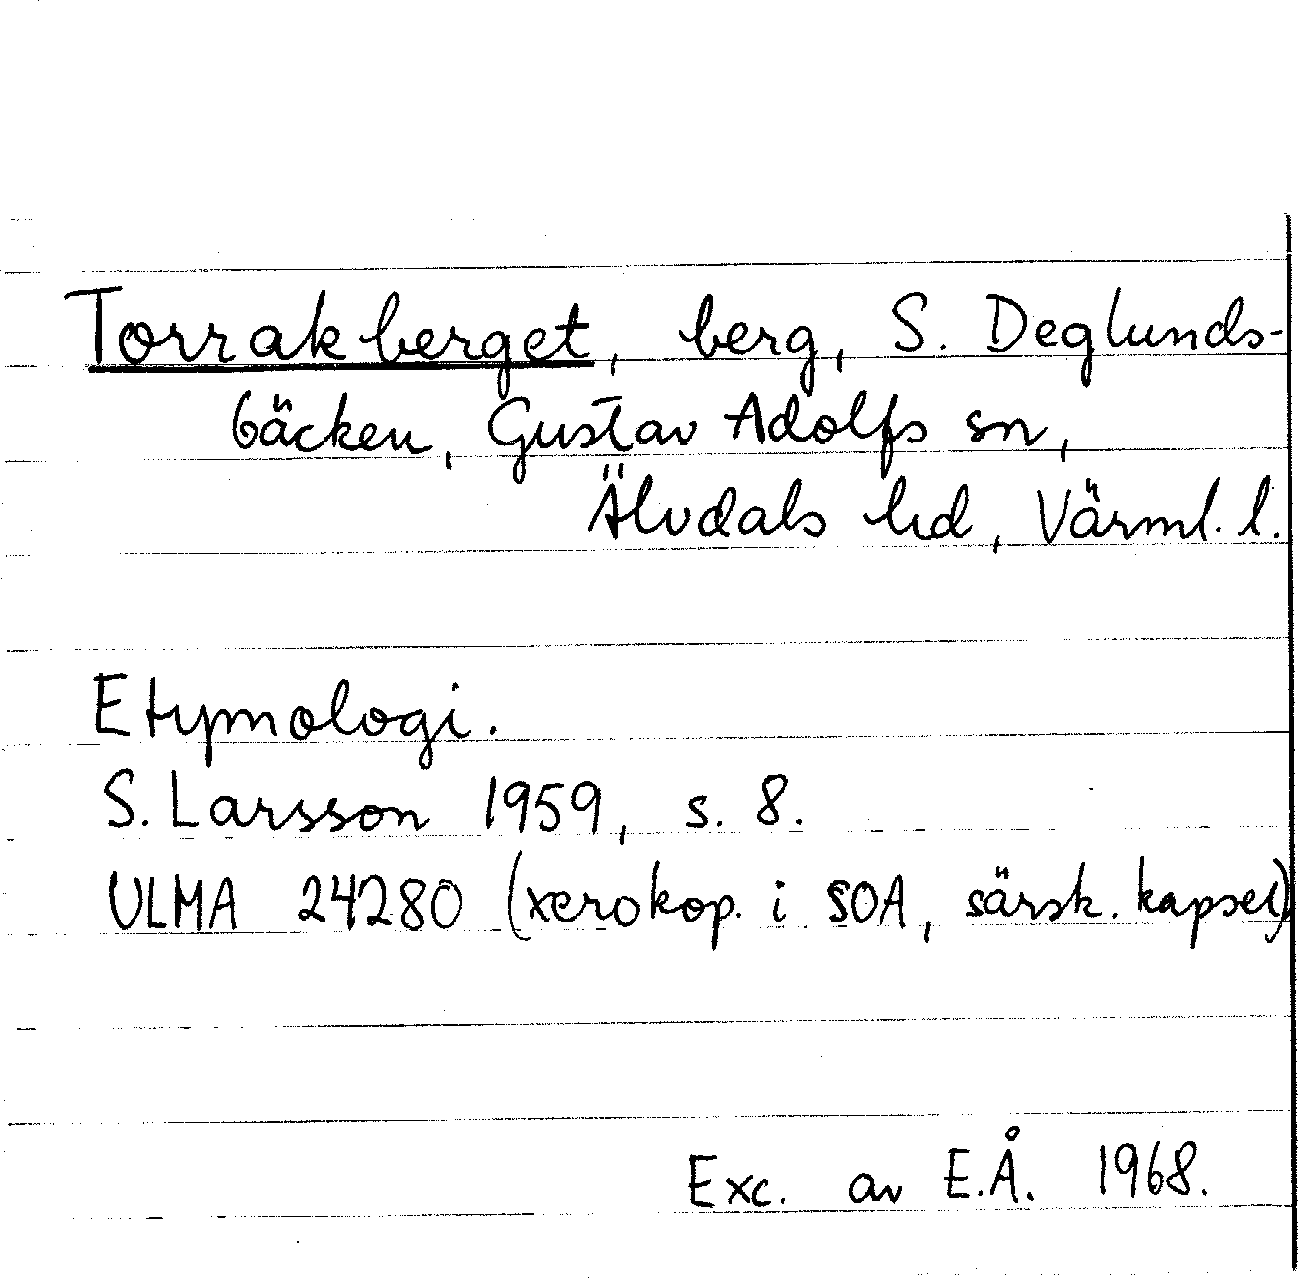 Torrakberget, berg, S. Deglunds-
bäcken, Gustav Adolfs sn,
Älvdals hd, Värml. l.
Etymologi.
S. Larsson 1959, s. 8.
ULMA 24280 (xerokop. i SOA, särsk. kapsel)
Exc. av E.Å. 1968.